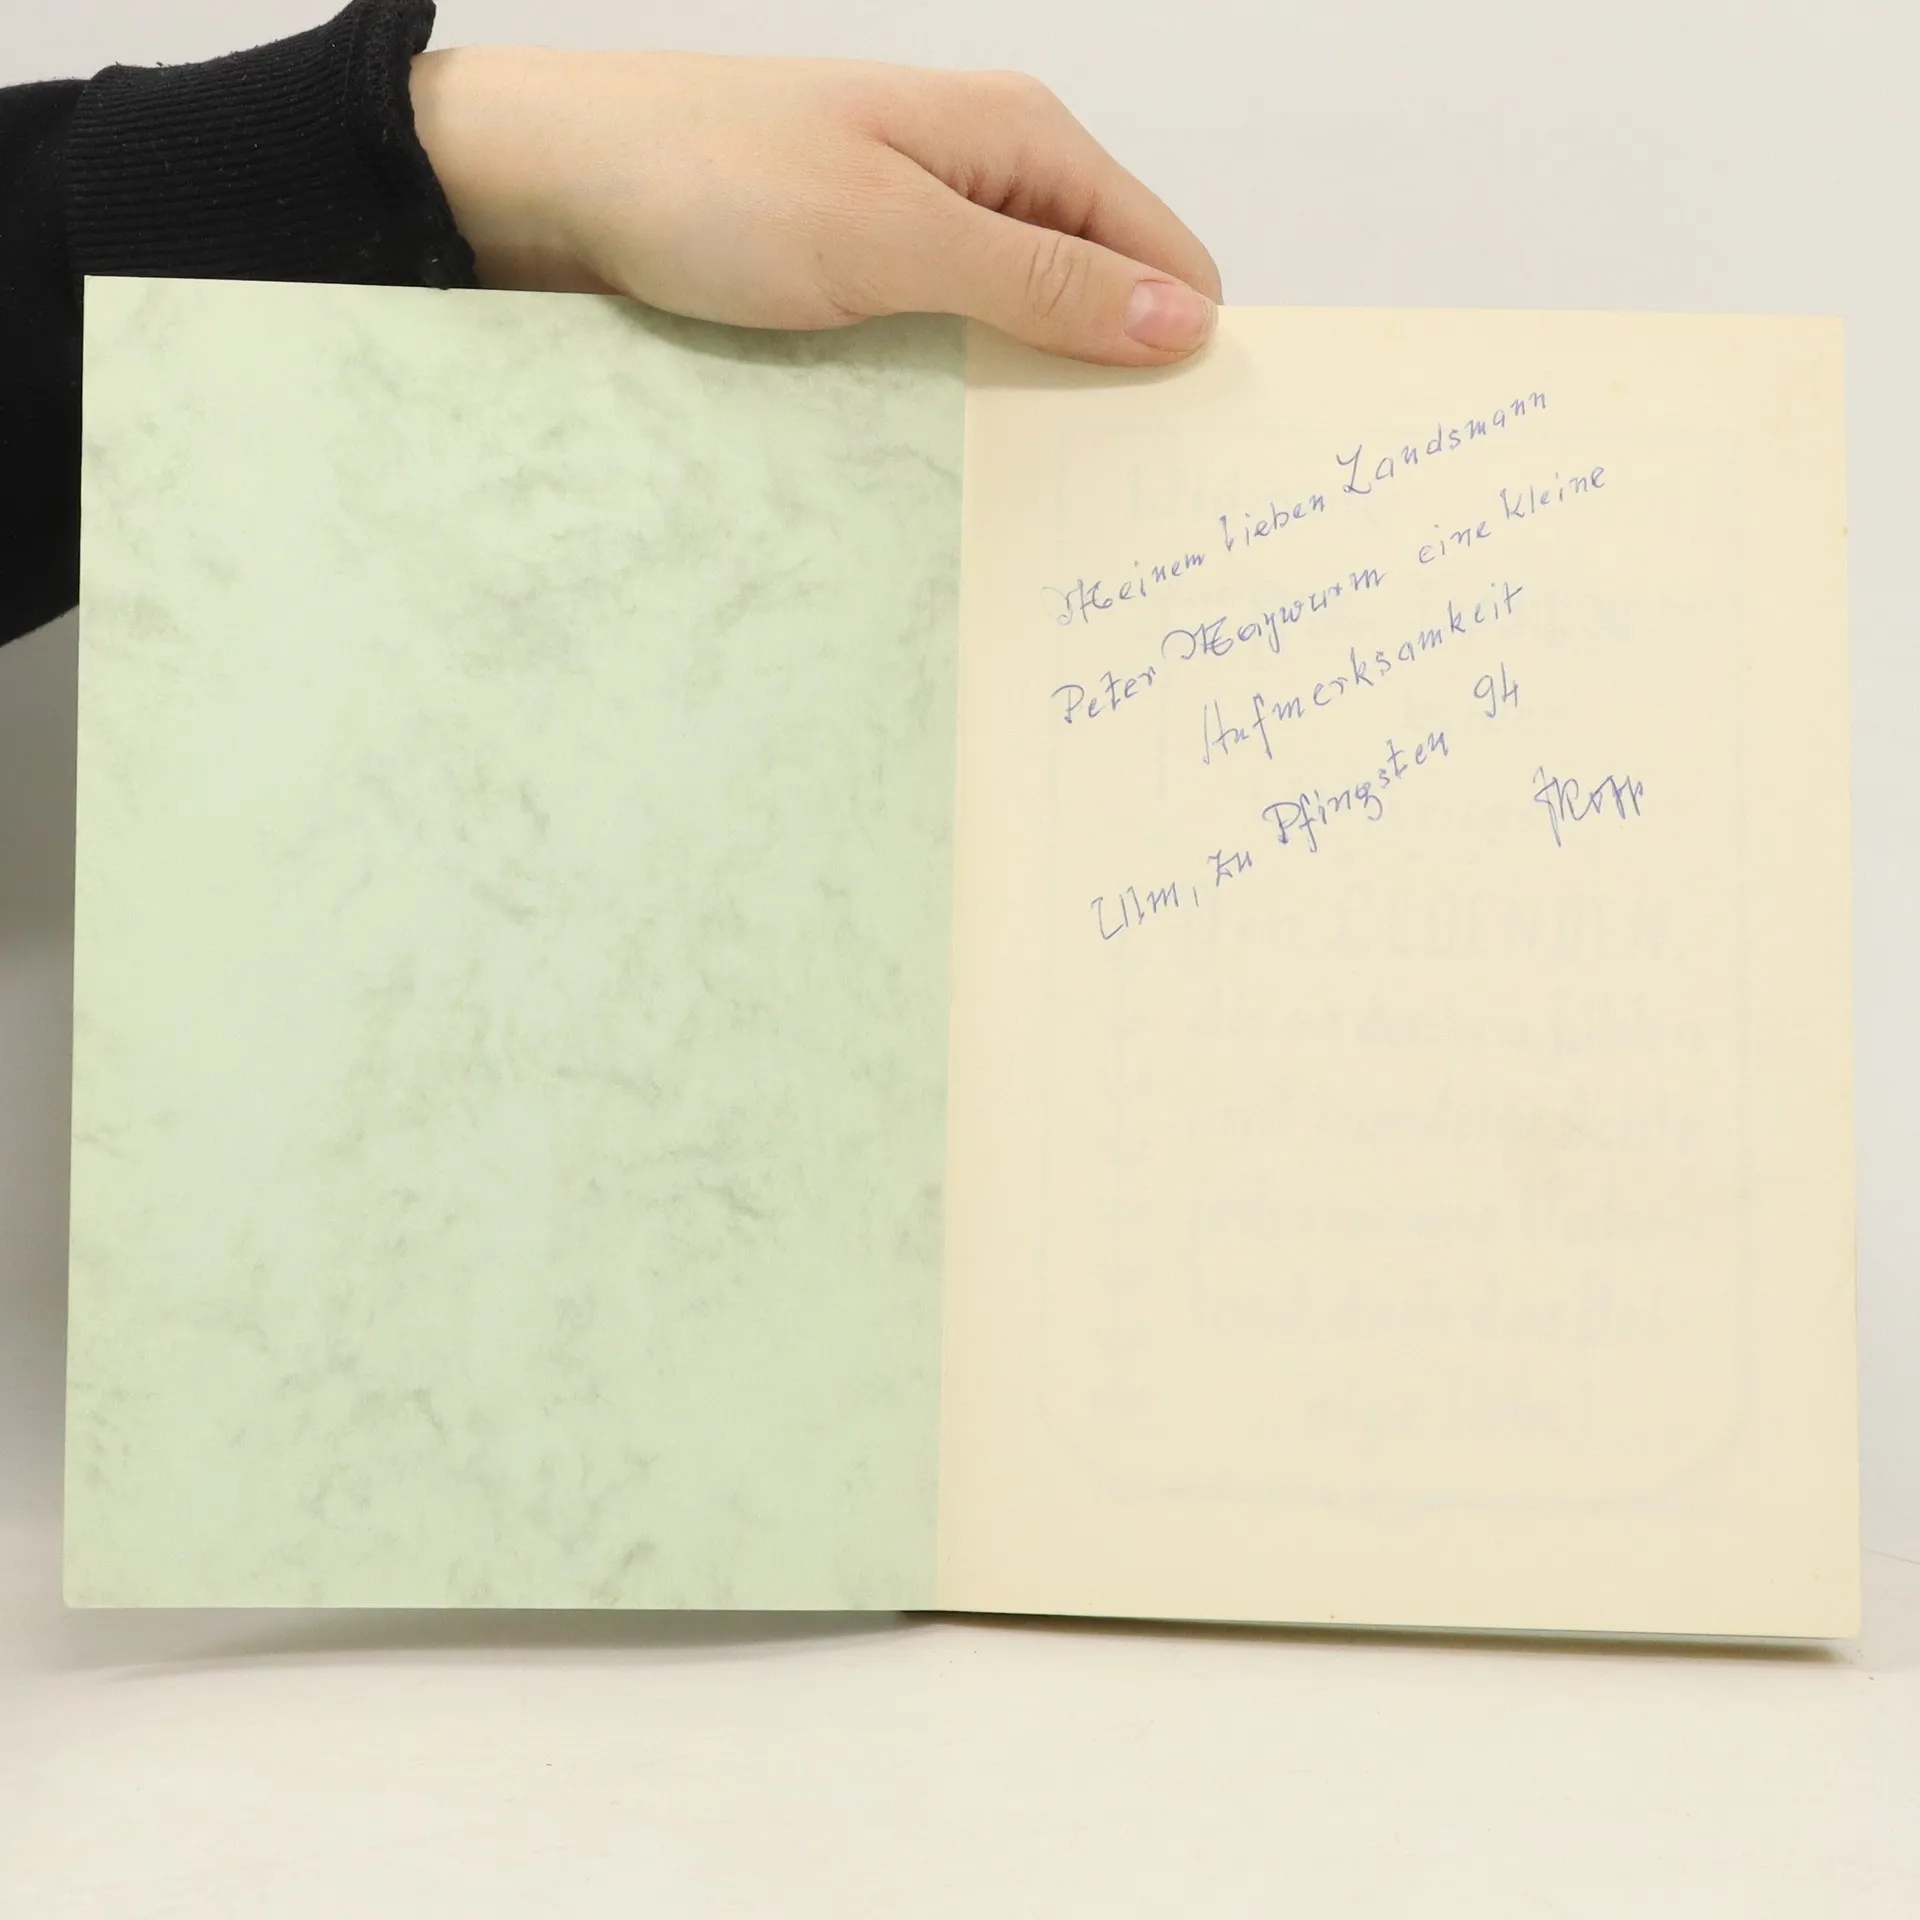 Meinem lieben Landsmann
Peter Maywurm eine kleine
Aufmerksamkeit
Ulm, zu Pfingsten 94